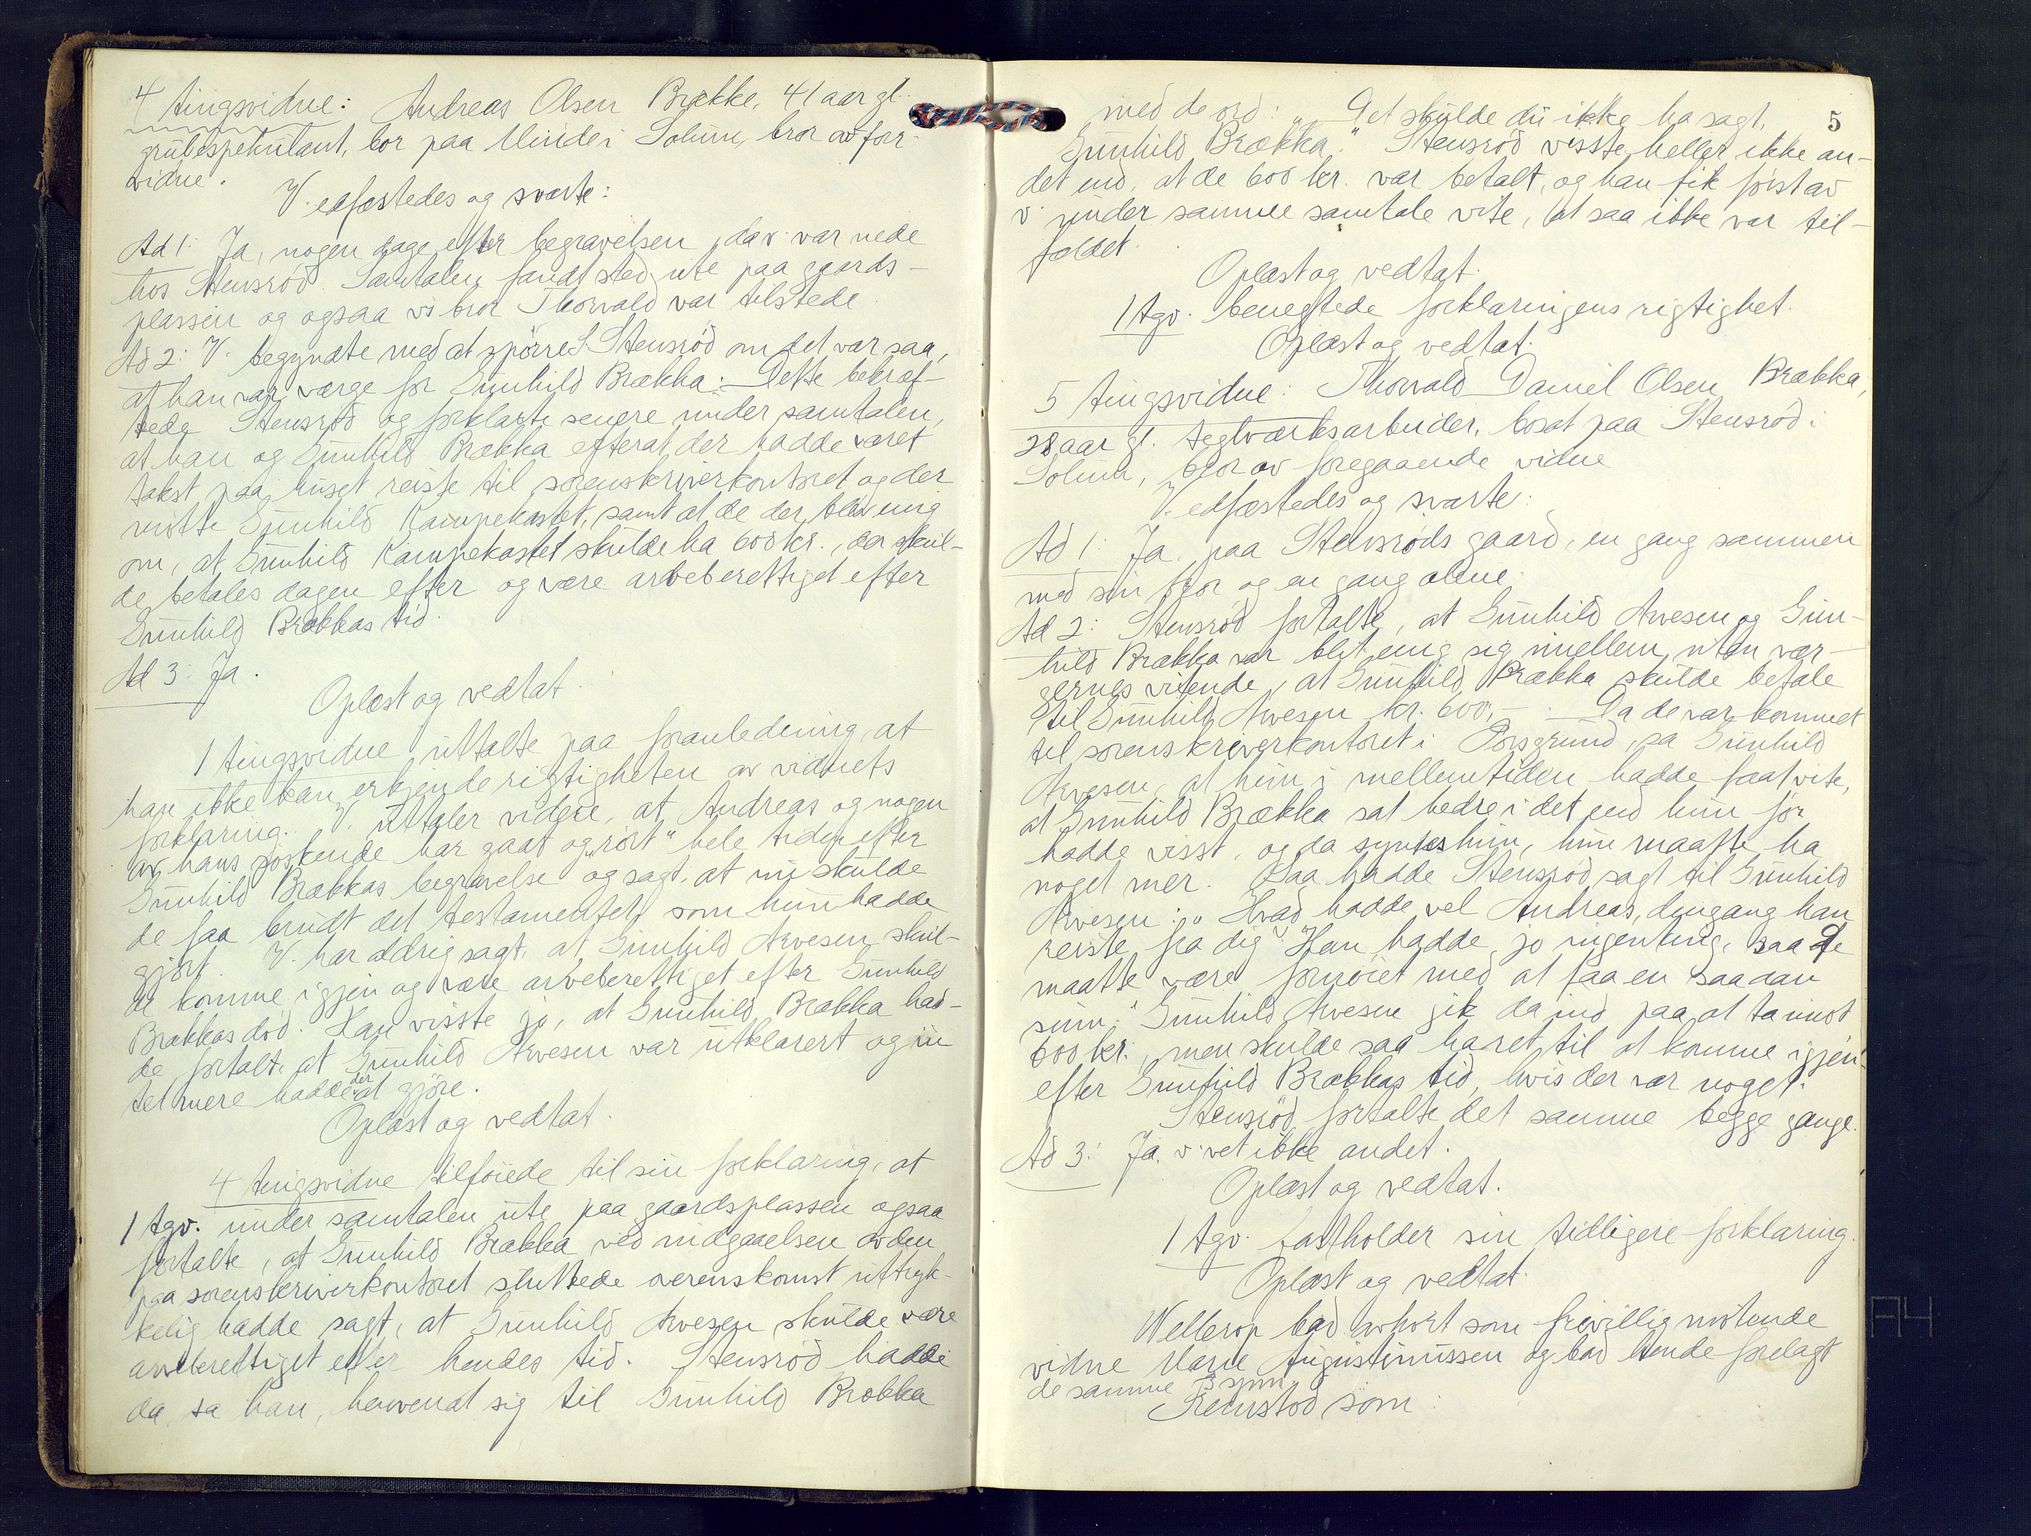 4 tingsvidne: Andreas Olsen Brække, 41 aar gl.
grubespekulant, bor paa Minde i Solum, bror av forr.
vidne.
V. edfæstedes og svarte:
Ad 1: Ja, nogen dage efter begravelsen, da v. var nede
hos Stensrød. Samtalen fandt sted ute paa gaards-
plassen og ogsaa vs bror Thorvald var tilstede.
Ad 2: V. begyndte med at spörre S. Stensrød om det var saa,
at han var værge for Gunhild Brækka. Dette bekræf-
tede Stensrød og forklarte senere under samtalen,
at han og Gunhild Brækka efterat der hadde været
takst paa huset reiste til sorenskriverkontoret og der
møtte Gunhild Kampekastet, samt at de der blev enig
om, at Gunhild Kampekastet skulde ha 600 kr., der skul-
de betales dagen efter og være arveberettiget efter
Gunhild Brækkas tid.
Ad 3: Ja.
Oplæst og vedtat.
1 tingsvidne uttalte paa foranledning, at
han ikke kan erkjende rigtigheten av vidnets
forklaring. V. uttaler videre, at Andreas og nogen
av hans søskende har gaat og „rørt" hele tiden efter
Gunhild Brækkas begravelse og sagt, at nu skulde
de faa brudt det testamentet, som hun hadde
gjort. V. har aldrig sagt, at Gunhild Arvesen skul-
de komme igjen og være arveberettiget efter Gunhild
Brækkas død. Han visste jo, at Gunhild Brækka had-
de fortalt, at Gunhild Arvesen var utklarert og in
tet mere hadde der at gjöre.
Oplæst og vedtat.
4 tingsvidne tilføiede til sin forklaring, at
1 tgv. under samtalen ute paa gaardsplassen ogsaa
fortalte, at Gunhild Brækka ved indgaaelsen av den
paa sorenskriverkontoret sluttede overenskomst uttryk-
kelig hadde sagt, at Gunhild Arvesen skulde være
arveberettiget efter hendes tid. Stensrød hadde
da, sa han, henvendt sig til Gunhild Brækka
5
med de ord: „Det skulde du ikke ha sagt,
Gunhild Brækka." Stensrød visste heller ikke an-
det end, at de 600 kr. var betalt, og han fik först av
v. under samme samtale vite, at saa ikke var til-
fældet.
Oplæst og vedtat.
1 tgv. benegtede forklaringens rigtighet.
Oplæst og vedtat.
5 tingsvidne: Thorvald Daniel Olsen Brækka,
28 aar gl. teglværksarbeider, bosat paa Stensrød i
Solum, bror av foregaaende vidne
V. edfæstedes og svarte:
Ad 1: Ja, paa Stensrøds gaard, en gang sammen
med sin bror og en gang alene.
Ad 2: Stensrød fortalte, at Gunhild Arvesen og Gun-
hild Brækka var blit enig sig imellem, uten vær-
gernes vitende, at Gunhild Brækka skulde betale
til Gunhild Arvesen kr. 600,-. Da de var kommet
til sorenskriverkontoret i Porsgrund, sa Gunhild
Arvesen, at hun i mellemtiden hadde faat vite,
at Gunhild Brækka sat bedre i det end hun för
hadde visst, og da syntes hun, hun maatte ha
noget mer. Saa hadde Stensrød sagt til Gunhild
Arvesen: „Hvad hadde vel Andreas, dengang han
reiste fra dig? Han hadde jo ingenting, saa De
maatte være fornøiet med at faa en saadan
sum." Gunhild Arvesen gik da ind paa at ta imot
600 kr., men skulde saa ha ret til at komme igjen
efter Gunhild Brækkas tid, hvis der var noget.
Stensrød fortalte det samme begge gange.
Ad 3: Ja. v. vet ikke andet.
Oplæst og vedtat.
1 tgv. fastholder sin tidligere forklaring.
Oplæst og vedtat.
Wellerop bad avhört som frivillig møtende
vidne Marie Augustinussen og bad hende forelagt
de samme spm.
Fremstod som :